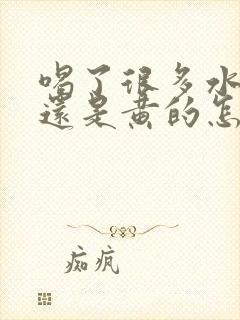 喝了很多水
还是黄的怎
痴疯